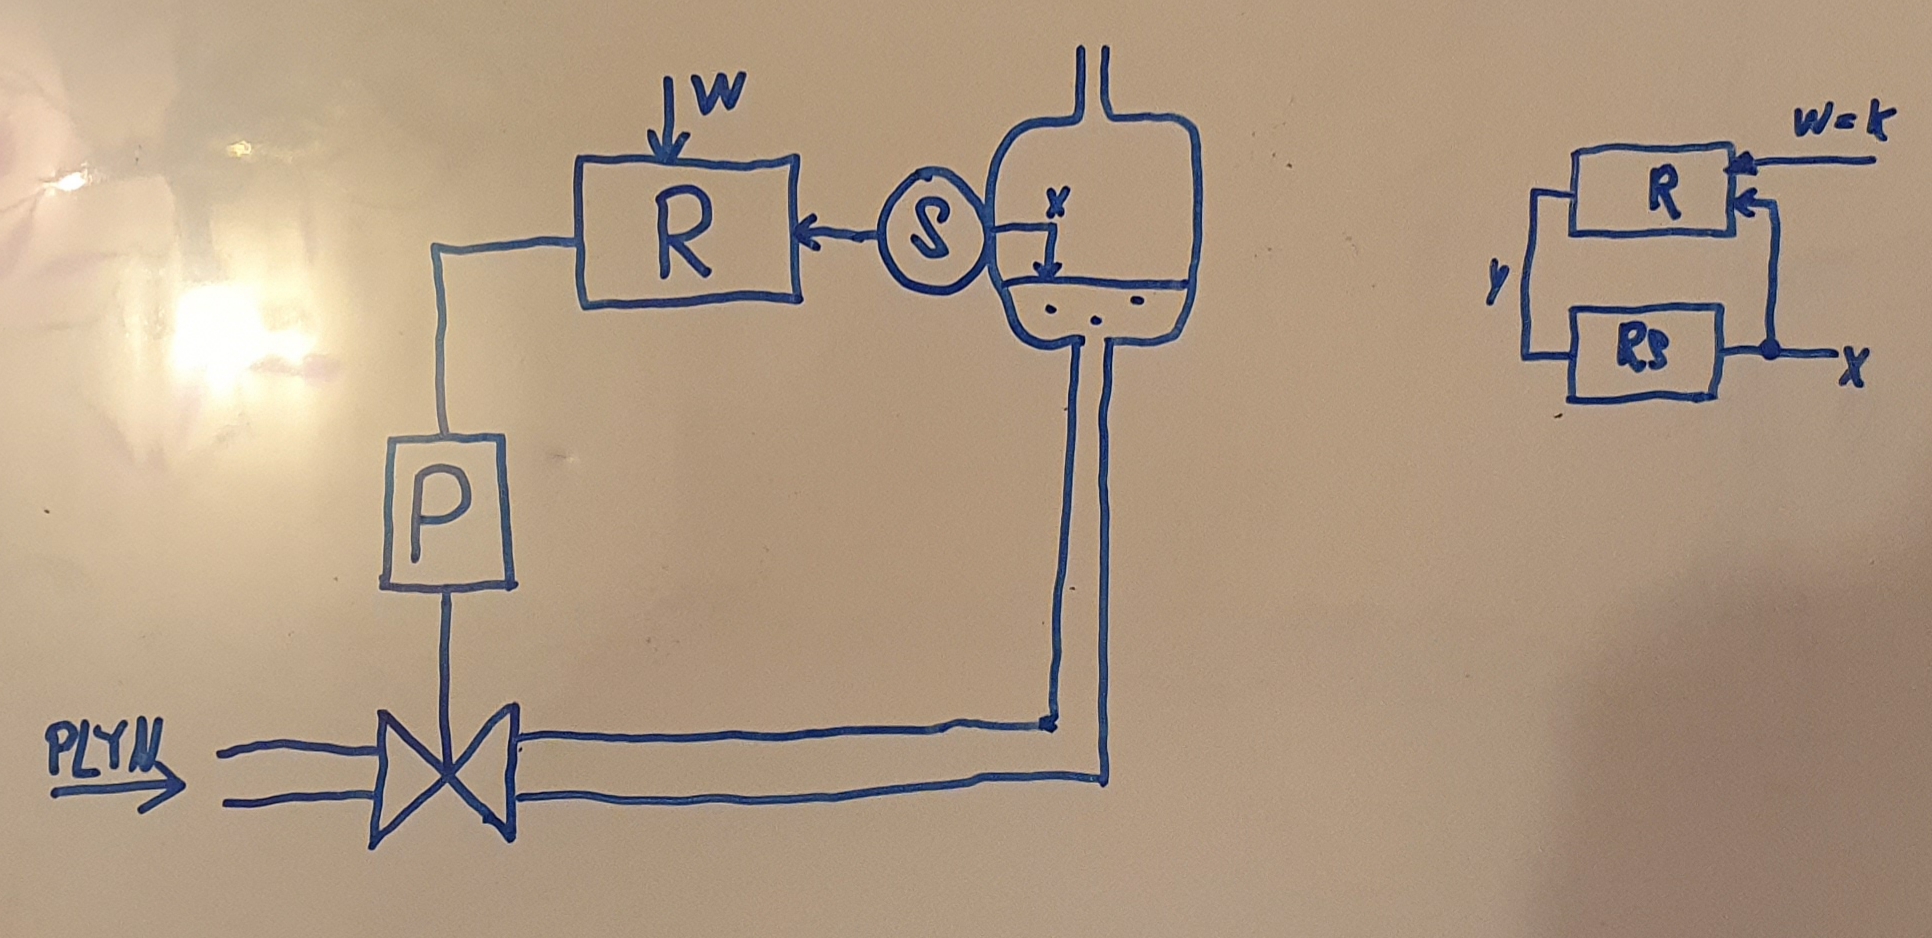 W
R
S
x
P
PLYN
W=K
R
y
RS
X